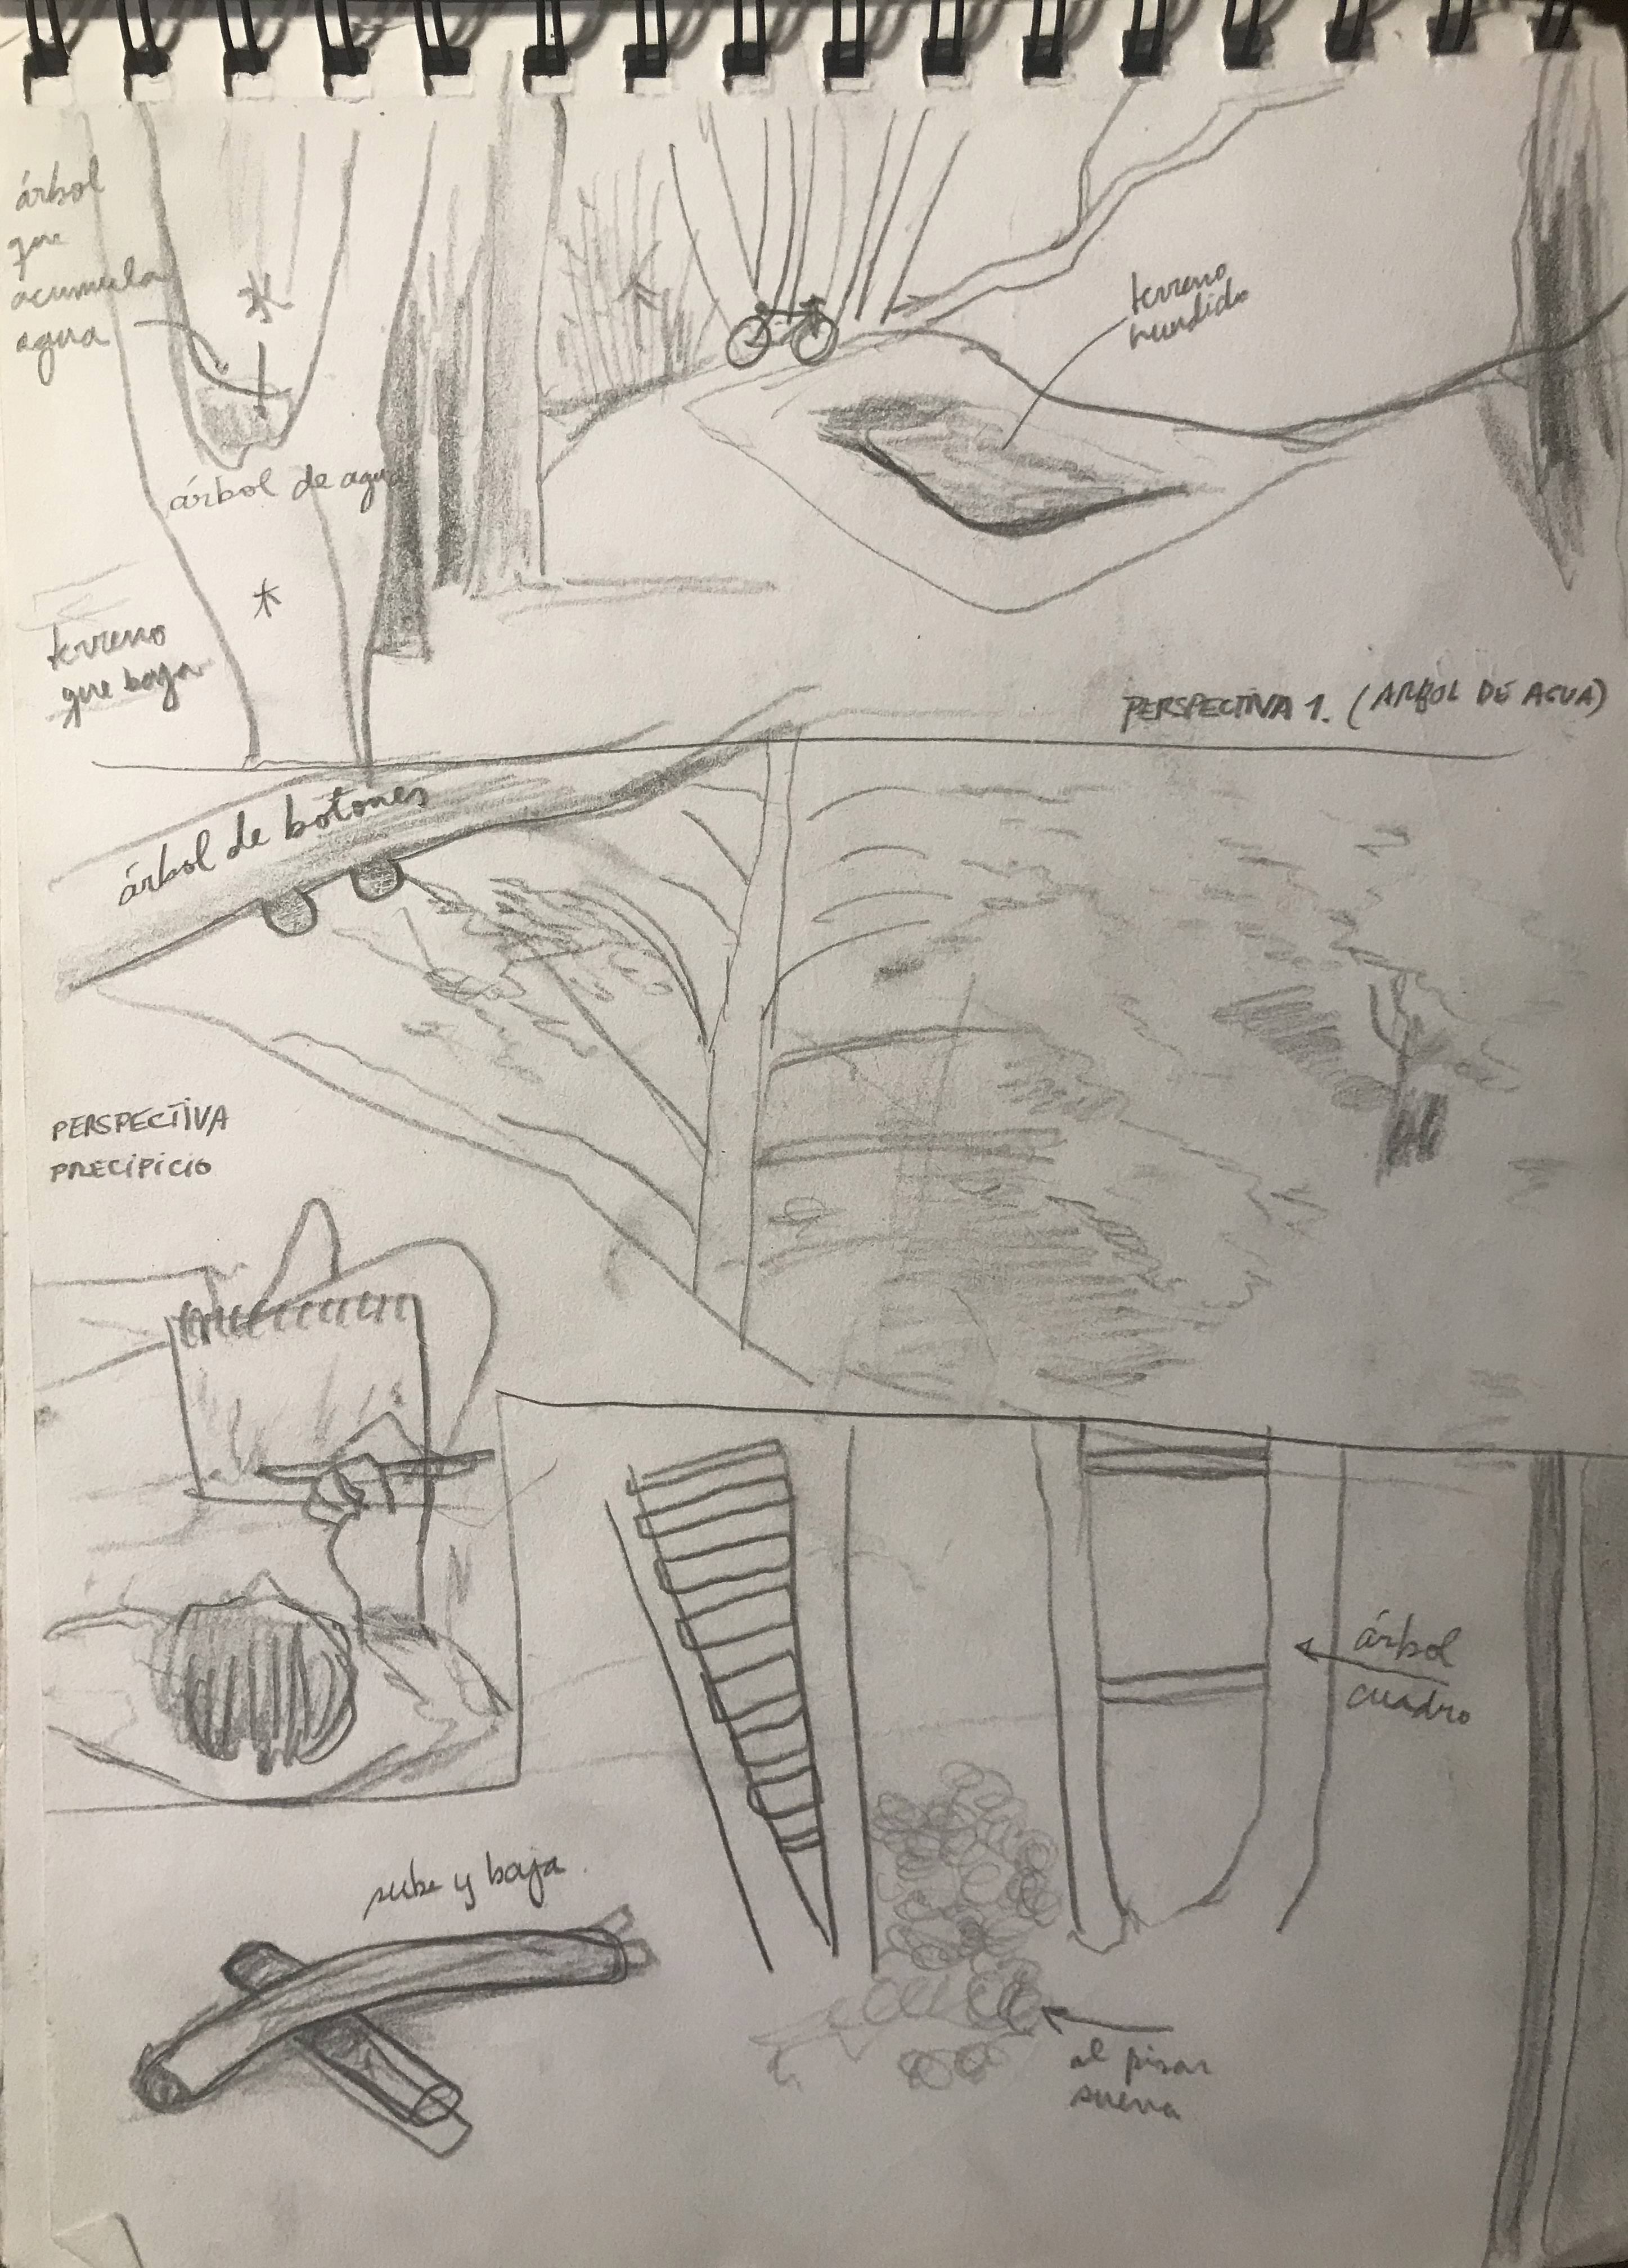 árbol
que
acumula
agua
terreno
hundido
árbol de agua
terreno
que baja
PERSPECTIVA 1. (ÁRBOL DE AGUA)
árbol de botones
PERSPECTIVA
PRECIPICIO
árbol
cuadro
sube y baja.
al pisar
suena